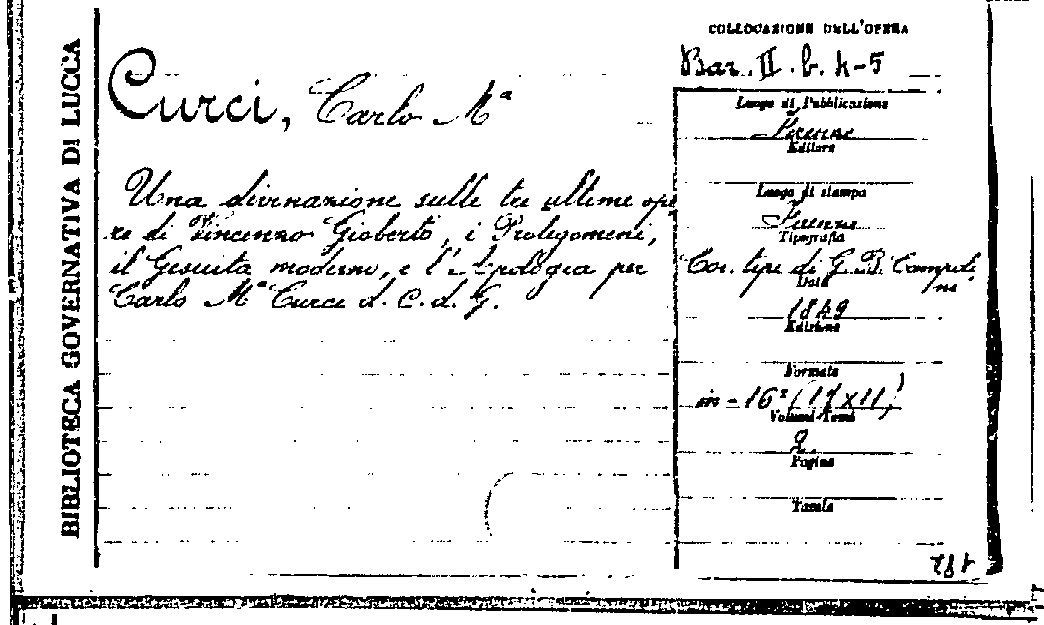 BIBLIOTECA GOVERNATIVA DI LUCCA
Curci, Carlo Mª
Una divinazione sulle tre ultime ope
re di Vincenzo Gioberti, i Prolegomeni,
il Gesuita moderno, e l'Apologia per
Carlo Mª Curci d. C. d. G.
COLLOCAZIONE DELL'OPERA
Bar. II. b. 4-5
Luogo di Pubblicazione
Firenze
Editore
Luogo di stampa
Firenze
Tipografia
Coi tipi di G. B. Campoli
ni
Data
1849
Edizione
Formato
in-16º (17x11)
Volumi-Tomi
2
Pagine
Tavole